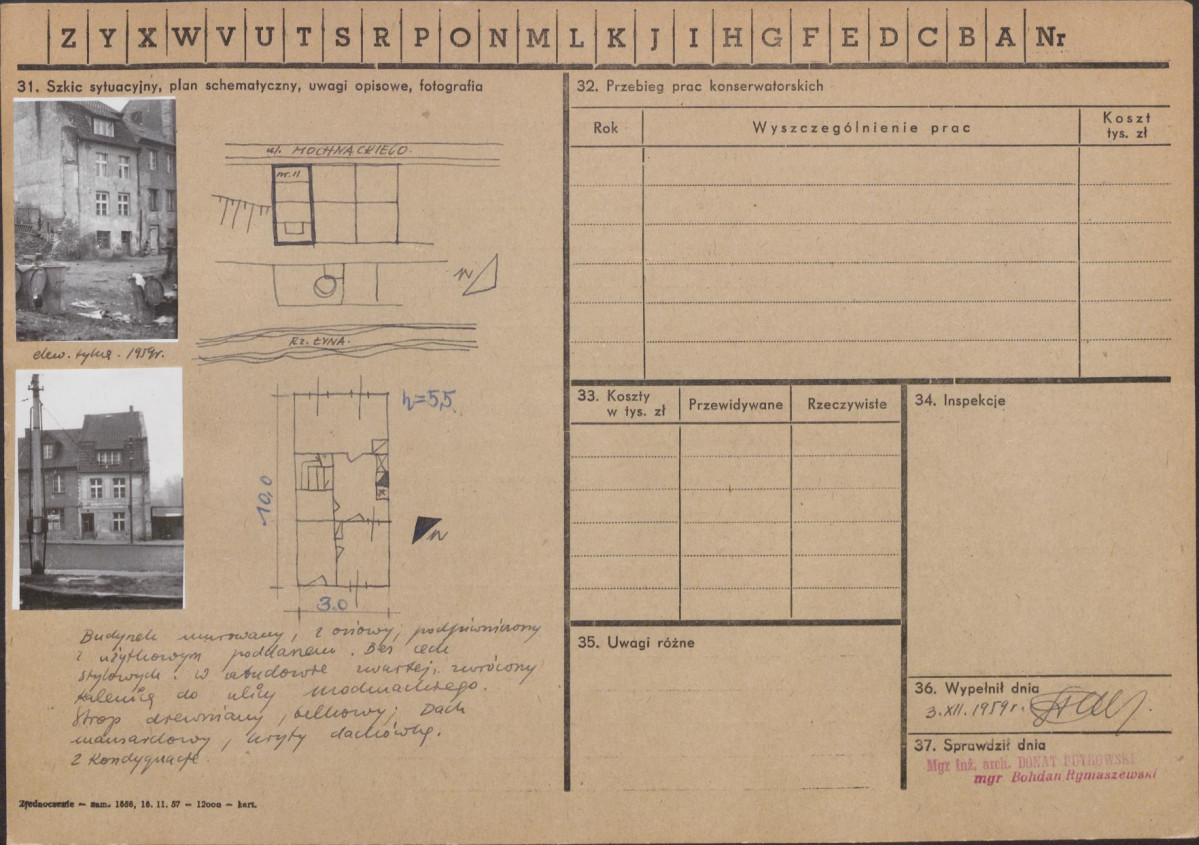 Z Y X W V U T S R P O N M L K J I H G F E D C B A Nr
31. Szkic sytuacyjny, plan schematyczny, uwagi opisowe, fotografia
ul. MOCHNACKIEGO.
nr. 11
N
Rz. ŁYNA.
elew. tylna. 1959r.
h=5,5
10,0
N
3.0
Budynek murowany, 2 osiowy, podpiwniczony
z użytkowym poddaszem. Bez cech
stylowych. W zabudowie zwartej, zwrócony
kalenicą do ulicy Mochnackiego.
Strop drewniany, belkowy; Dach
mansardowy, kryty dachówką.
2 Kondygnacje.
Zjednoczenie — zam. 1656, 16. 11. 57 — 12000 — kart.
32. Przebieg prac konserwatorskich
Rok
Wyszczególnienie prac
Koszt
tys. zł
33. Koszty
w tys. zł
Przewidywane
Rzeczywiste
34. Inspekcje
35. Uwagi różne
36. Wypełnił dnia
3.XII.1959r.
37. Sprawdził dnia
Mgr inż. arch. DONAT
mgr Bohdan Rymaszewski